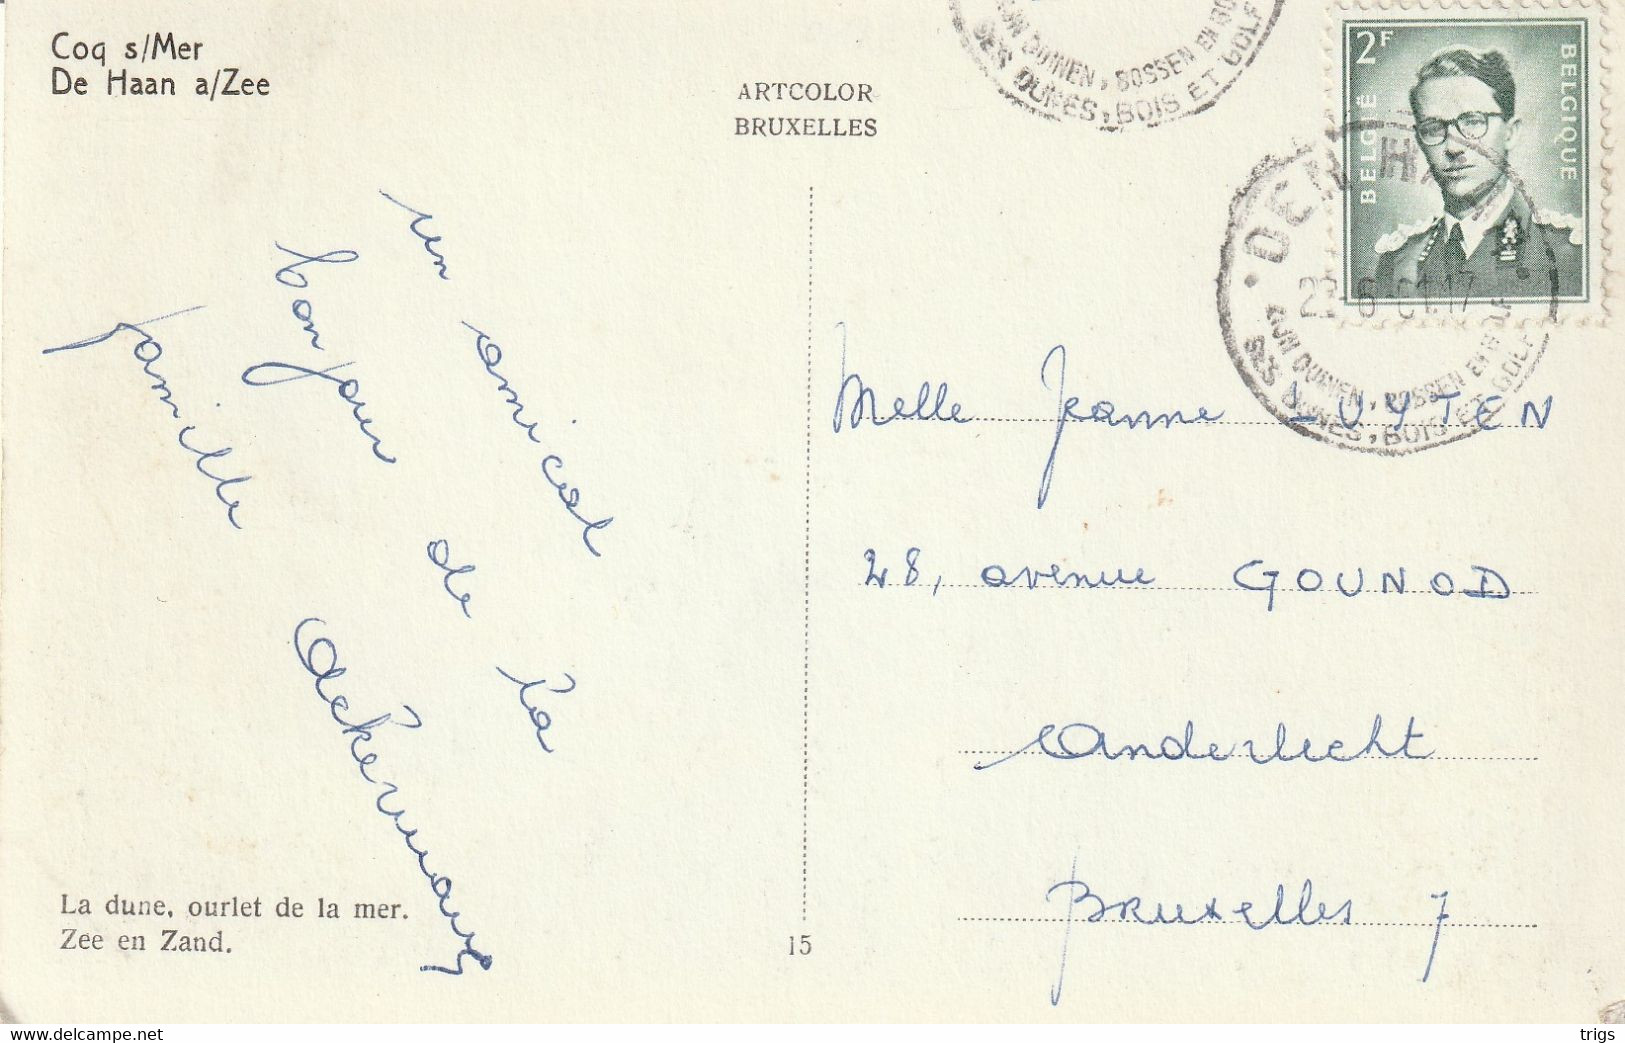 Coq s/Mer
De Haan a/Zee
ARTCOLOR
BRUXELLES
ZIJN DUINEN, BOSSEN EN
SES DUNES, BOIS ET GOLF
2F
BELGIË
BELGIQUE
DE HAAN
-6-61.17
ZIJN DUINEN, BOSSEN EN GOLF
SES DUNES, BOIS ET GOLF
un amical
bonjour de la
famille Ackermans
Melle Jeanne LUYTEN
28, avenue GOUNOD
Anderlecht
Bruxelles 7
La dune, ourlet de la mer.
Zee en Zand.
15
www.delcampe.net
trigs